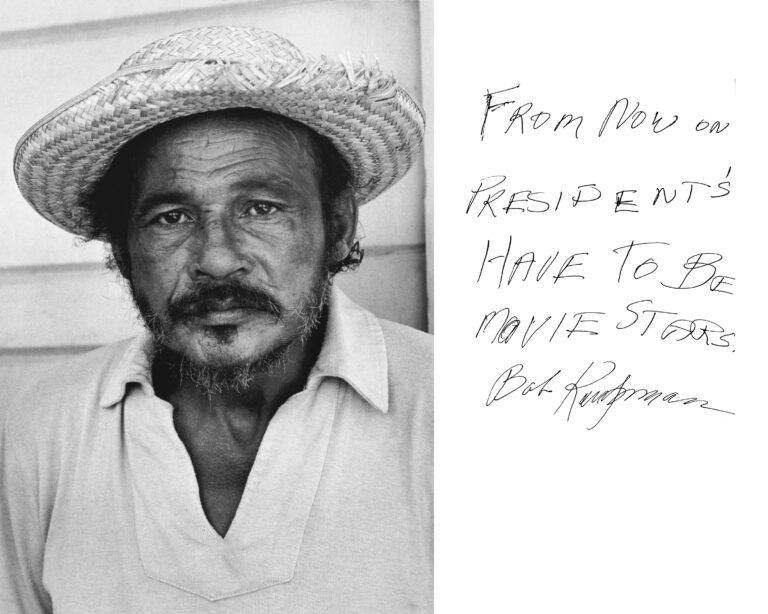 From Now on
President's
Have To Be
Movie Stars.
Bob Kaufman